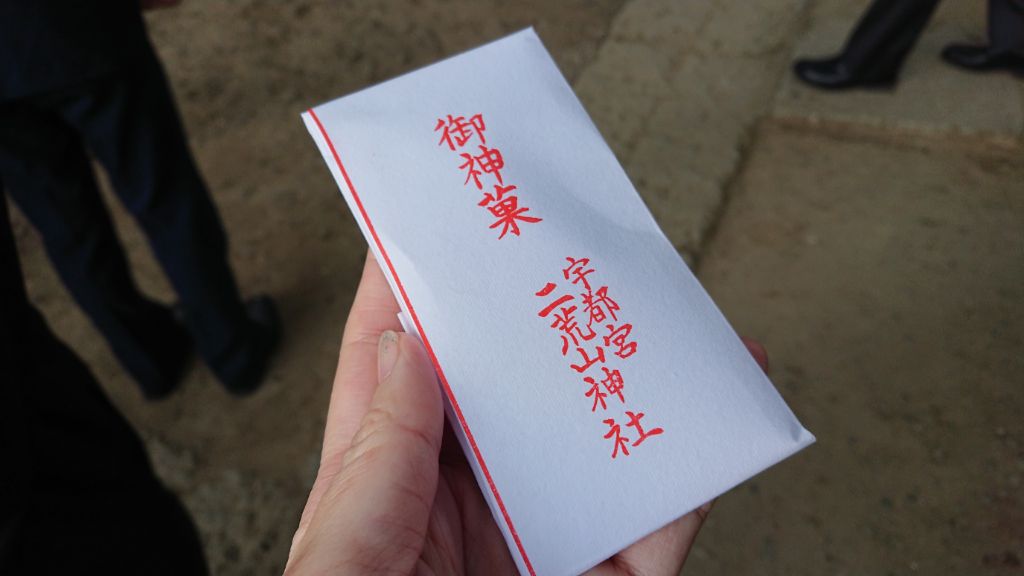 御神菓
宇都宮
二荒山神社